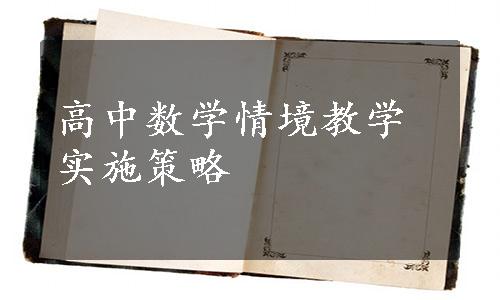 高中数学情境教学
实施策略